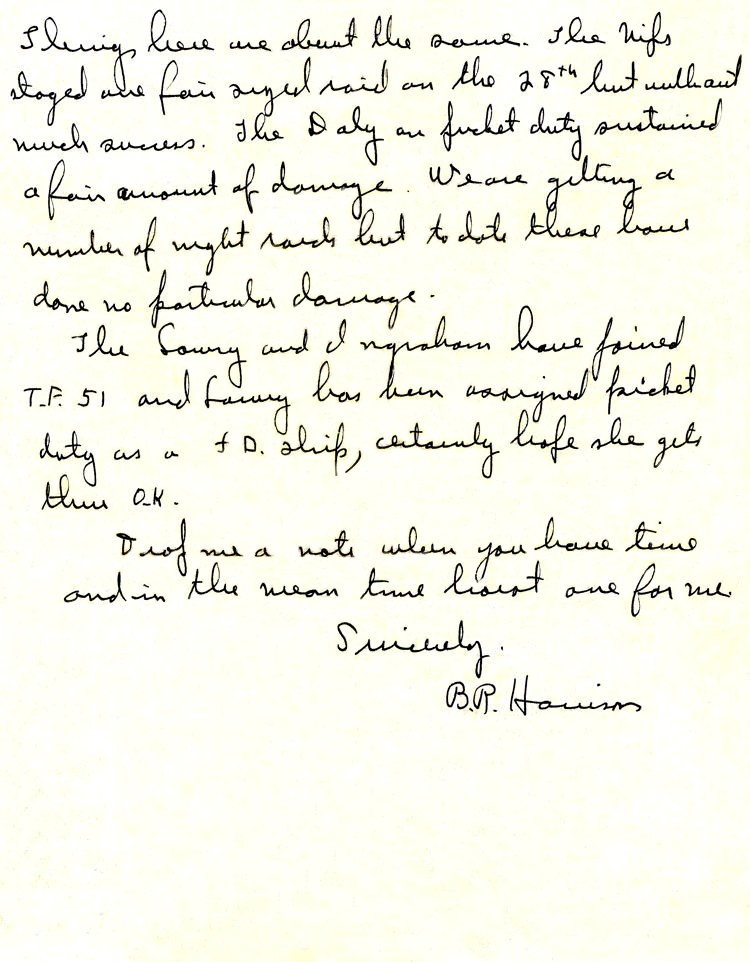 Things here are about the same. The Nips
staged one fair sized raid on the 28th but without
much success. The Daly on picket duty sustained
a fair amount of damage. We are getting a
number of night raids but to date these have
done no particular damage.
The Lowry and Ingraham have joined
T.F. 51 and Lowry has been assigned picket
duty as a F.D. ship, certainly hope she gets
thru O.K.
Drop me a note when you have time
and in the mean time hoist one for me.
Sincerely.
B.R. Harrison